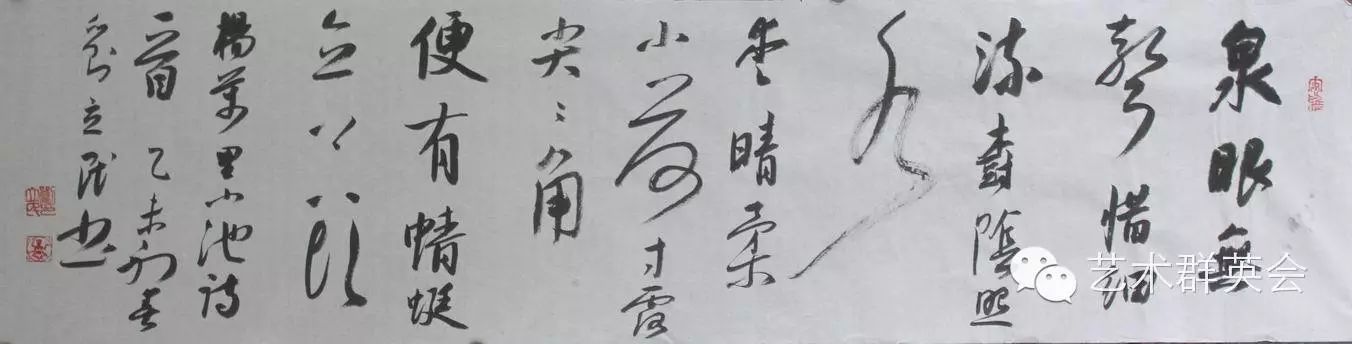 泉眼無
聲惜細
流樹陰照
水
愛晴柔
小荷才露
尖〻角
便有蜻蜓
立上頭
楊萬里小池詩
一首 乙未初春
劉立民书
艺术群英会